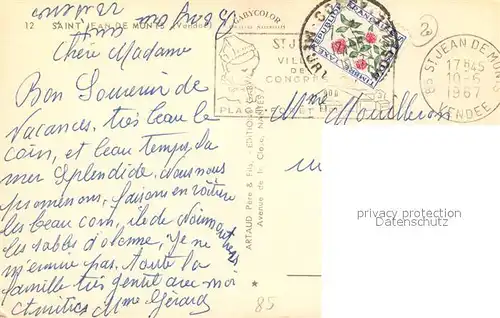 12 SAINT JEAN DE MONTS (Vendée)
BABYCOLOR
Chère Madame
Bon Souvenir de
Vacances, très beau le
coin, et beau temps, la
mer Splendide. Nous nous
promenons, faisons en voiture
les beau coin, île de Noirmoutiers
les sables d'olonne, je ne
m'ennuie pas, toute la
famille très gentil avec moi
Amitiés Mme Gérard
ST JEAN
VILLE
DE
CONGRES
RÉPUBLIQUE FRANÇAISE
TIMBRE TAXE
ST JEAN DE MONTS
17H45
10-6
1967
VENDEE
Mme
ARTAUD Père & Fils, EDITIONS
Avenue de la Close, NANTES
privacy protection
watermark
85